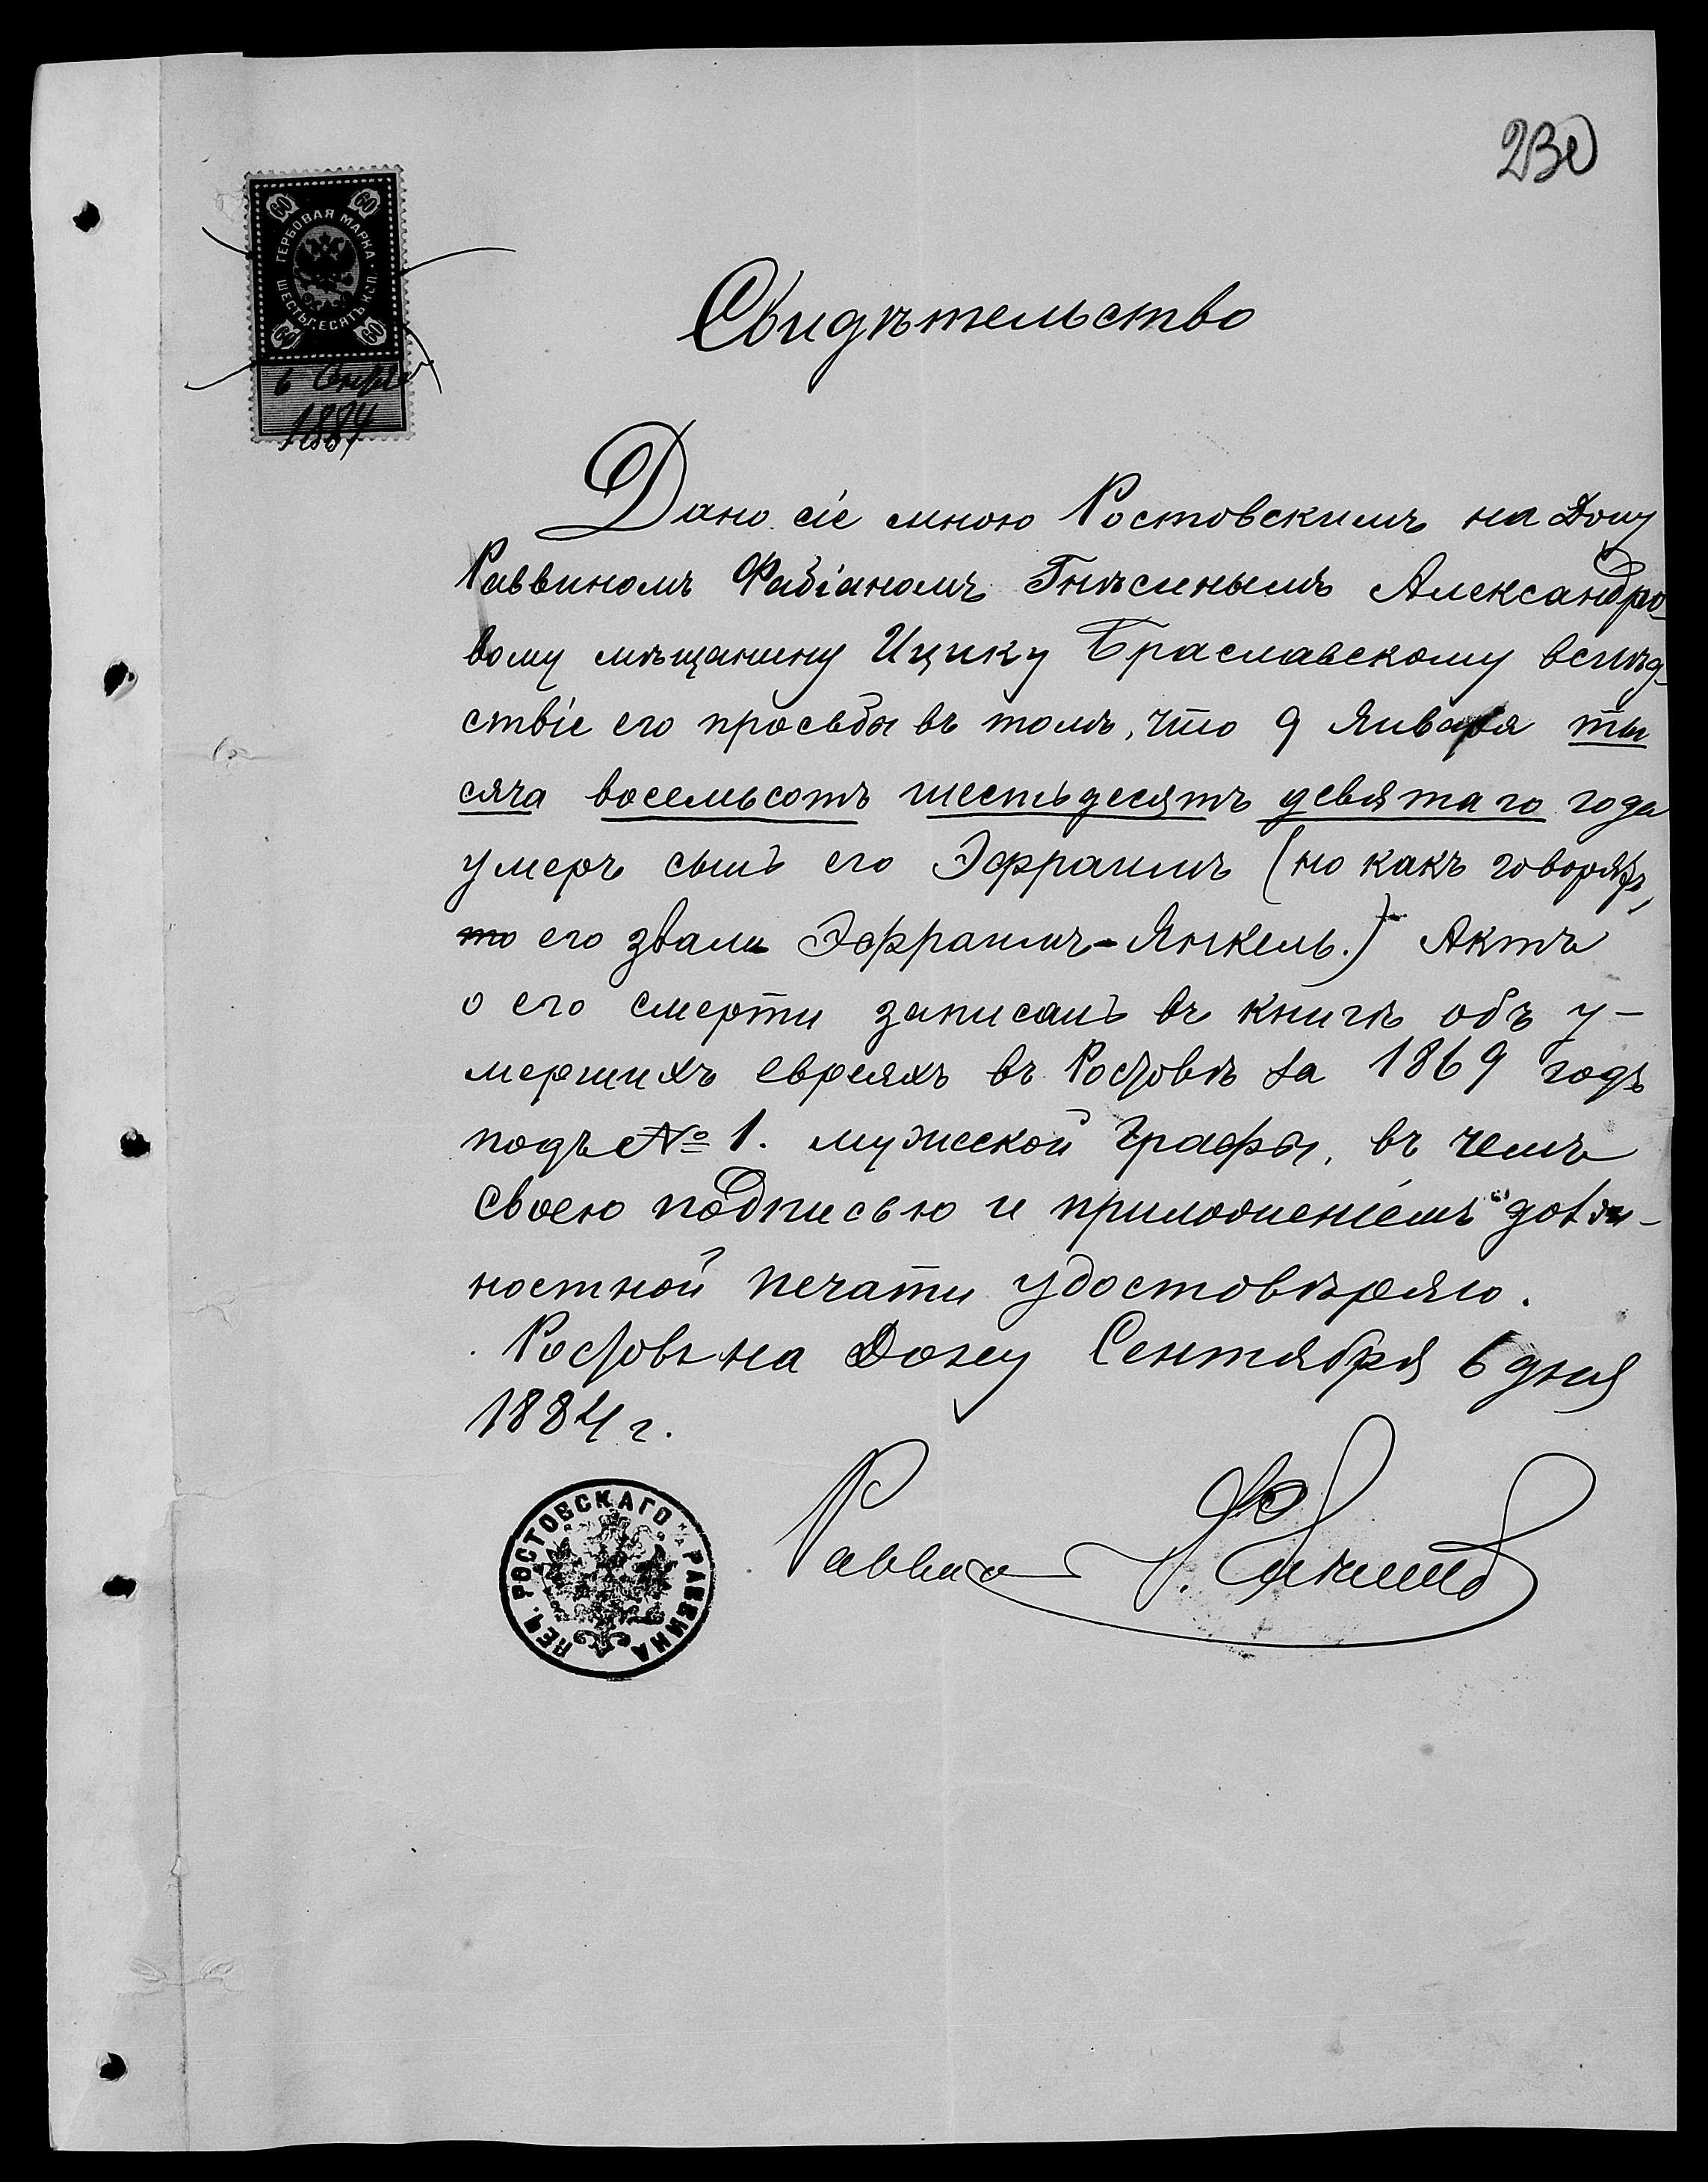 230
60 60
ГЕРБОВАЯ МАРКА
ШЕСТЬДЕСЯТЪ КОП.
60 60
6
1884
Свидѣтельство
Дано сіе мною Ростовскимъ на Дону
Раввиномъ Фабіаномъ Гнѣсинымъ Александро-
вому мѣщанину Ицику Браславскому вслѣд-
ствіе его просьбы въ томъ, что 9 Января ты
сяча восемьсотъ шестьдесятъ девятаго года
умеръ сынъ его Эфраимъ (но какъ говорятъ,
то его звали Эфраимъ-Янкель.) Актъ
о его смерти записанъ въ книгѣ объ у-
мершихъ евреяхъ въ Ростовѣ за 1869 годъ
подъ № 1. мужской графы, въ чемъ
своею подписью и приложеніемъ долж-
ностной печати удостовѣряю.
Ростовъ на Дону Сентября 6 дня
1884 г.
Раввинъ Ф. Гнѣсинъ
ПЕЧ. РОСТОВСКАГО н/Д РАВВИНА